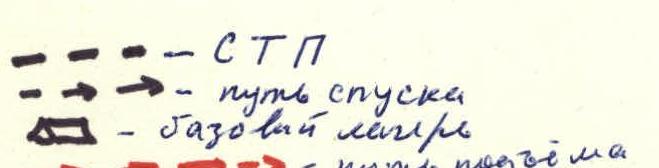 – СТП
– путь спуска
– базовый лагерь
– путь подъёма